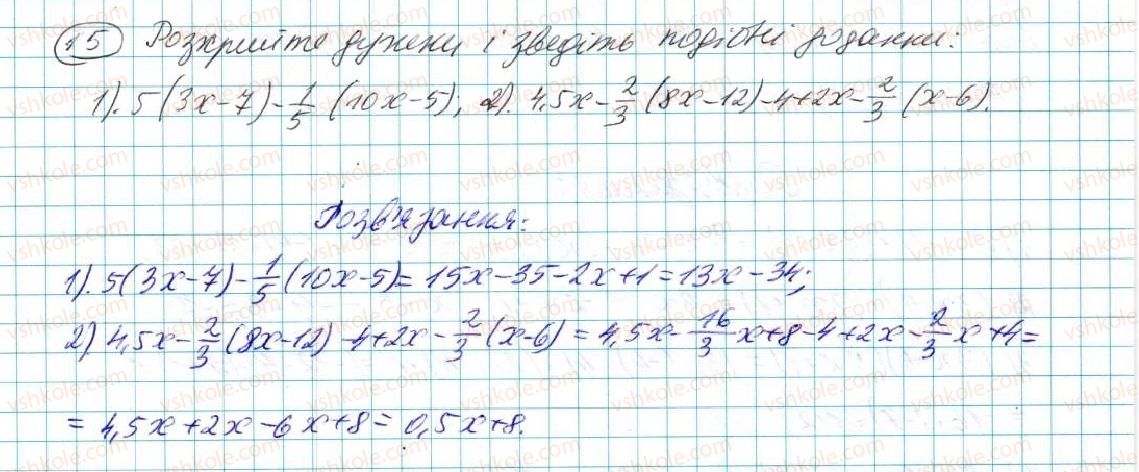 15 Розкрийте дужки і зведіть подібні доданки:
1). 5(3x-7)-1/5(10x-5); 2). 4,5x-2/3(8x-12)-4+2x-2/3(x-6).
Розв'язання:
1). 5(3x-7)-1/5(10x-5)=15x-35-2x+1=13x-34;
2) 4,5x-2/3(8x-12)-4+2x-2/3(x-6)=4,5x-16/3x+8-4+2x-2/3x+4=
=4,5x+2x-6x+8=0,5x+8.